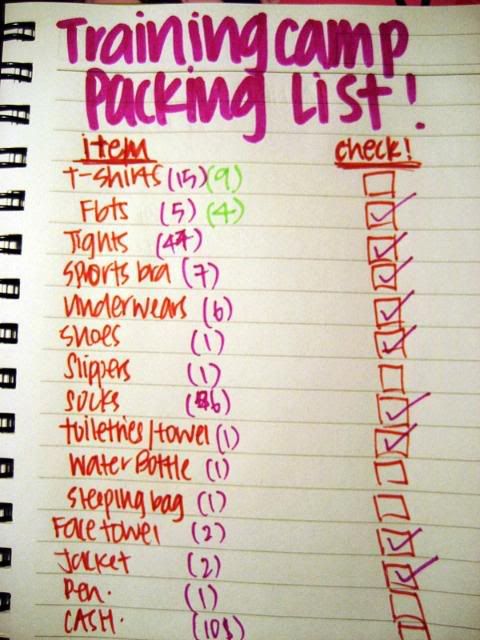 Training camp
Packing List!
item check!
T-shirts (15) (9)
FBTs (5) (4)
Tights
sports bra (7)
underwears (6)
shoes (1)
Slippers (1)
socks
toiletries/towel (1)
water Bottle (1)
sleeping bag (1)
Face towel (2)
Jacket (2)
Pen. (1)
CASH. (10$)